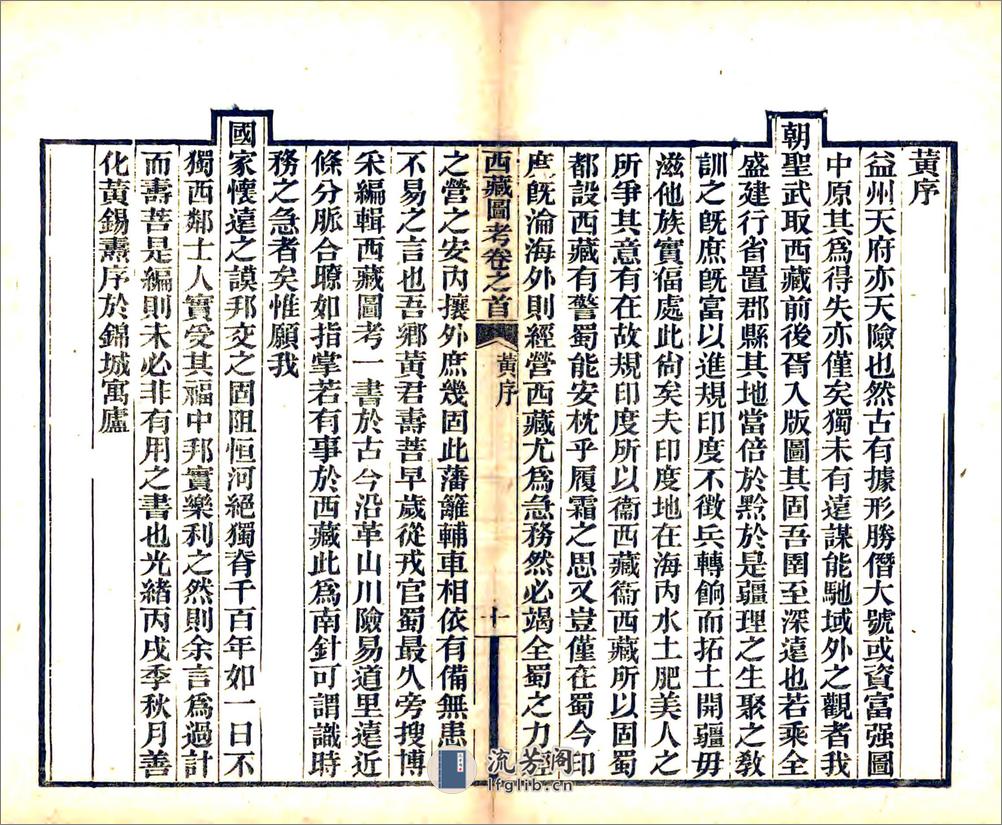 黃序
益州天府亦天險也然古有據形勝僭大號或資富强圖
中原其爲得失亦僅矣獨未有遠謀能馳域外之觀者我
朝聖武取西藏前後胥入版圖其固吾圉至深遠也若乘全
盛建行省置郡縣其地當倍於黔於是疆理之生聚之教
訓之旣庶旣富以進規印度不徵兵轉餉而拓土開疆毋
滋他族實偪處此尙矣夫印度地在海內水土肥美人之
所爭其意有在故規印度所以衞西藏衞西藏所以固蜀
都設西藏有警蜀能安枕乎履霜之思又豈僅在蜀今印
度旣淪海外則經營西藏尤爲急務然必竭全蜀之力經
西藏圖考卷之首 黃序 十
之營之安內攘外庶幾固此藩籬輔車相依有備無患
不易之言也吾鄉黃君壽菩早歲從戎官蜀最久旁搜博
采編輯西藏圖考一書於古今沿革山川險易道里遠近
條分脈合瞭如指掌若有事於西藏此爲南針可謂識時
務之急者矣惟願我
國家懷遠之謨邦交之固阻恒河絕獨脊千百年如一日不
獨西鄰士人實受其福中邦實樂利之然則余言爲過計
而壽菩是編則未必非有用之書也光緒丙戌季秋月善
化黃錫燾序於錦城寓廬
流芳閣
lfglib.cn